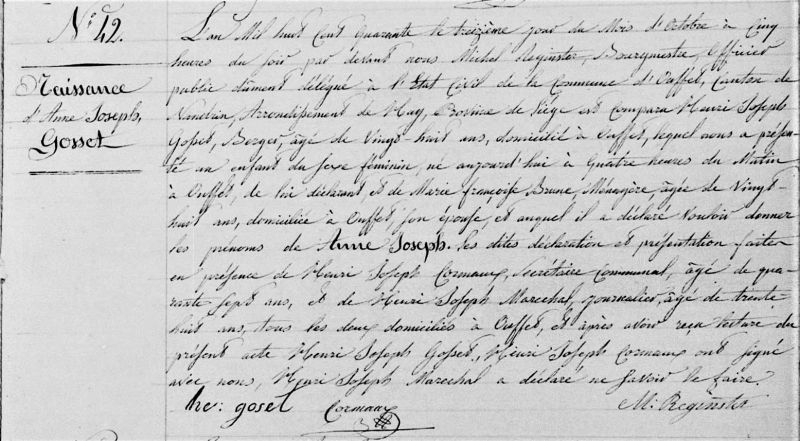 N.° 42.
Naissance
d'Anne Joseph,
Gosset
L'an Mil huit Cent Quarante le treizième jour du Mois d'Octobre à Cinq
heures du soir par devant nous Michel Reginster, Bourgmestre, Officier
public dûment délégué à l'Etat Civil de la Commune d'Ouffet, Canton de
Nandrin, Arrondissement de Huy, Province de Liége est comparu Henri Joseph
Gosset, Berger, âgé de Vingt huit ans, domicilié à Ouffet, lequel nous a présen-
té un enfant du sexe féminin, né aujourd'hui à quatre heures du Matin
à Ouffet, de lui déclarant et de Marie françoise Brune, Ménagère âgée de Vingt
huit ans, domiciliée à Ouffet, son épouse, et auquel il a déclaré Vouloir donner
les prénoms de Anne Joseph. les dites déclaration et présentation faites
en présence de Henri Joseph Cormaux, Secrétaire Communal, âgé de qua-
rante sept ans, et de Henri Joseph Marechal, journalier, âgé de trente
huit ans, tous les deux domiciliés à Ouffet, et après avoir reçu lecture du
présent acte Henri Joseph Gosset, Henri Joseph Cormaux ont signé
avec nous, Henri Joseph Marechal a déclaré ne savoir le faire.
he: goset Cormaux M: Reginster